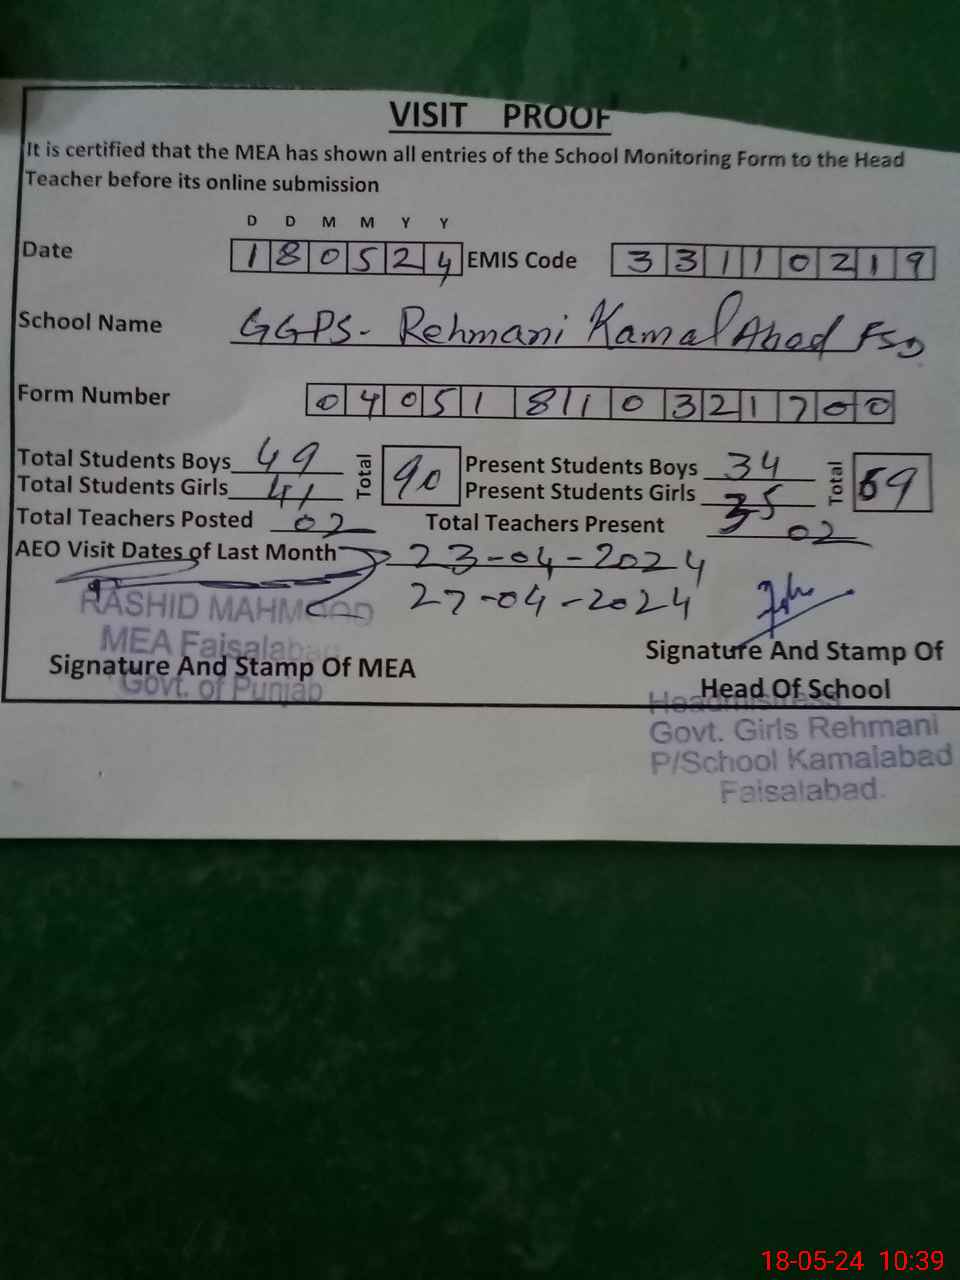 VISIT PROOF
It is certified that the MEA has shown all entries of the School Monitoring Form to the Head
Teacher before its online submission
D D M M Y Y
Date 180524 EMIS Code 33110219
School Name GGPS- Rehmani Kamal Abad FSD
Form Number 040518110321700
Total Students Boys 49 Total 90 Present Students Boys 34 Total 69
Total Students Girls 41 Present Students Girls 35
Total Teachers Posted 02 Total Teachers Present 02
AEO Visit Dates of Last Month 23-04-2024
27-04-2024
RASHID MAHMOOD
MEA Faisalabad
Signature And Stamp Of MEA
Govt. of Punjab
Signature And Stamp Of
Head Of School
Headmistress
Govt. Girls Rehmani
P/School Kamalabad
Faisalabad.
18-05-24 10:39